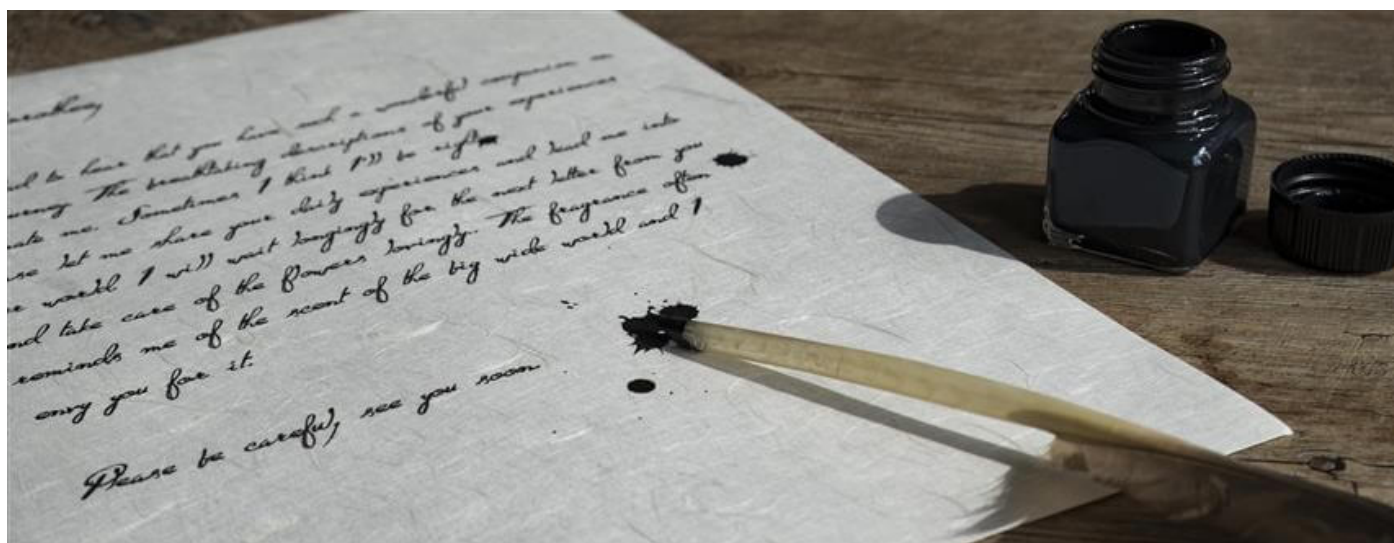 to hear that you have such a wonderful companion
The breathtaking descriptions of your experiences
me. Sometimes I think I'll be right
let me share your daily experiences and lead me into
world I will wait longingly for the next letter from you
take care of the flowers lovingly. The fragrance often
reminds me of the scent of the big wide world and I
envy you for it.
Please be careful, see you soon